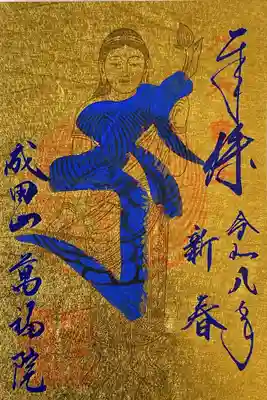 奉拝
令和八年
新春
成田山萬福院